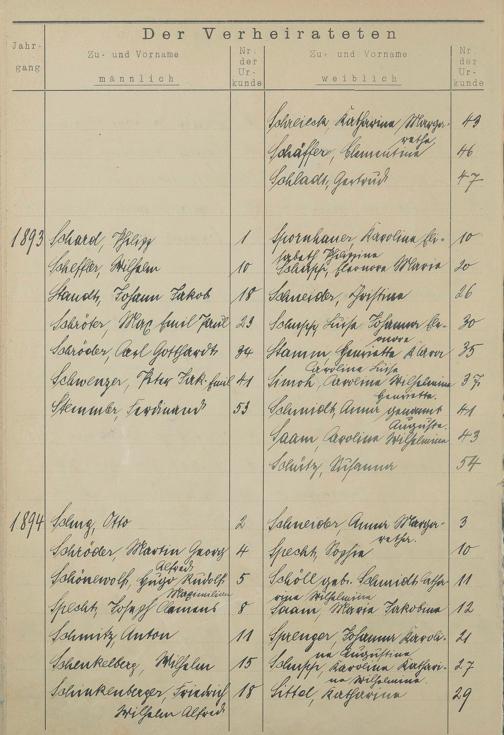 Der Verheirateten
Jahr-
gang
Zu- und Vorname
männlich
Nr.
der
Ur-
kunde
Zu- und Vorname
weiblich
Nr.
der
Ur-
kunde
Katharina Marga- 43
retha
Schäffer, Clementine 46
Schladt, Gertrud 47
1893 Schard, Philipp 1 Spornhauer, Karolina Eli- 10
sabeth Philippine
Scheffler, Wilhelm 10 Schupp, Eleonora Maria 20
Staudt, Johann Jakob 18 Schneider, Christina 26
Schröter, Max Emil Paul 23 Schupp, Luise Johanna Ele- 30
onore
Schröder, Carl Gotthardt 34 Stamm, Henriette 35
Caroline Luise
Schwenzer, Peter Jak. Emil 41 Simon, Carolina Wilhelmine 37
Henriette.
Stemmler, Ferdinand 53 Schmidt, Anna genannt 41
Auguste.
Saam, Carolina Wilhelmine 43
Schütz, Susanna 54
1894 Otto 2 Schneider Anna Marga- 3
retha.
Schröder, Martin Georg 4 Specht, Sophie 10
Alfred
Schönewolf, Hugo Rudolf 5 Schöll geb. Schmidt Catha- 11
Maximilian rina Wilhelmine
Specht, Joseph Clemens 8 Saam, Maria Jakobina 12
Schmitz Anton 11 Sprenger Johanna Karoli- 21
ne Augustine
Schenkelberg, Wilhelm 15 Schupp, Karoline Kathari- 27
na Wilhelmine.
Schinkenberger, Friedrich 18 Sittel, Katharina 29
Wilhelm Alfred